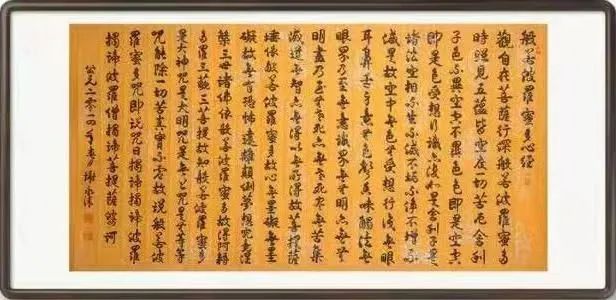 般若波羅蜜多心經
觀自在菩薩行深般若波羅蜜多
時照見五蘊皆空度一切苦厄舍利
子色不異空空不異色色即是空空
即是色受想行識亦復如是舍利子是
諸法空相不生不滅不垢不淨不增不
減是故空中無色無受想行識無眼
耳鼻舌身意無色聲香味觸法無
眼界乃至無意識界無無明亦無無
明盡乃至無老死亦無老死盡無苦集
滅道無智亦無得以無所得故菩提薩
埵依般若波羅蜜多故心無罣礙無罣
礙故無有恐怖遠離顛倒夢想究竟涅
槃三世諸佛依般若波羅蜜多故得阿耨
多羅三藐三菩提故知般若波羅蜜多
是大神咒是大明咒是無上咒是無等等
咒能除一切苦真實不虛故說般若波
羅蜜多咒即說咒曰揭諦揭諦波羅
揭諦波羅僧揭諦菩提薩婆訶
公元二零一四年